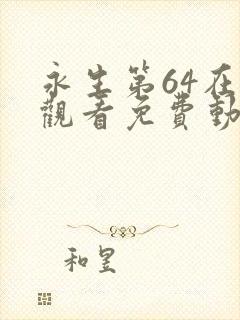 永生第64在
觀看免費動
和昱